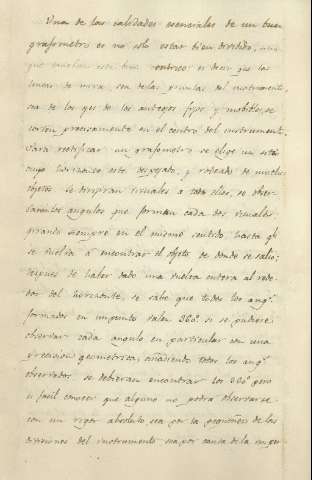 Una de las calidades esenciales de un buen
grafometro es no solo estar bien dividido, sino
que tambien este bien centrico es decir que las
lineas de mira, sea de las pinulas del instrumento,
sea de los ejes de los anteojos fijos y mobibles, se
corten precisamente en el centro del instrumento.
Para rectificar un grafometro se elige un sitio
cuyo horizonte este despejado, y rodeado de muchos
objetos se dirijiran visuales a todos ellos, se obser-
baran los angulos que forman cada dos visuales,
girando siempre en el mismo sentido, hasta qe
se buelba a encontrar el objeto de donde se salio;
despues de haber dado una buelta entera al rede-
dor del horizonte, se sabe que todos los angs
formados en un punto valen 360º si se pudiese
observar cada angulo en particular con una
precision geometrica, añadiendo todos los angs
observados se deberian encontrar los 360º pero
es facil conocer que alguno no podra observarse
con un rigor absoluto, sea por la pequeñez de las
divisiones del instrumento sea por causa de la imper-